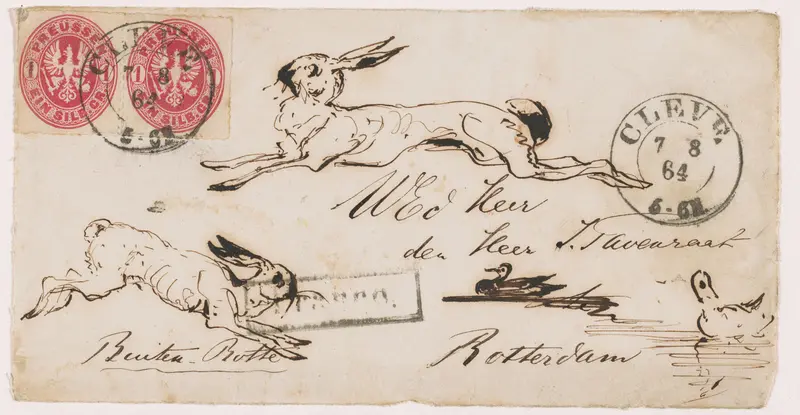 PREUSSEN
1
EIN SILB.GR.
PREUSSEN
1
EIN SILB.GR.
CLEVE
7 8
64
6-6N.
CLEVE
7 8
64
6-6N.
WEd Heer
den Heer J. Tavenraat
FRANCO.
Buiten-Rotte
Rotterdam